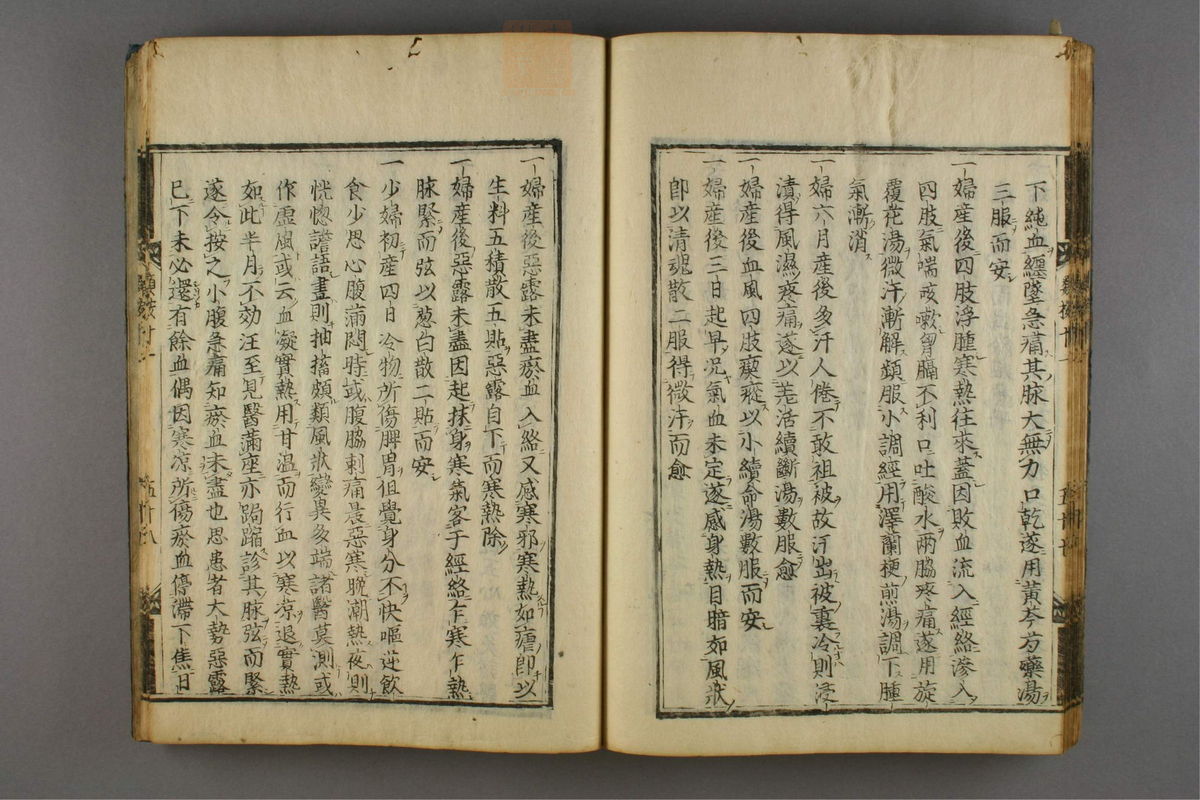 下純血纏墜急痛其脉大無力口乾遂用黄芩芍藥湯
三服而安
一婦産後四肢浮腫寒熱往來蓋因敗血流入經絡滲入
四肢氣喘咳嗽胷膈不利口吐酸水兩脇疼痛遂用旋
覆花湯微汗漸解頻服小調經用澤蘭梗煎湯調下腫
氣漸消
一婦六月産後多汗人倦不敢袒被故汗出被裏冷則浸
漬得風濕疼痛遂以羌活續斷湯數服愈
一婦産後血風四肢瘈瘲以小續命湯數服而安
一婦産後三日起早况氣血未定遂感身熱目暗如風狀
即以清魂散二服得微汗而愈
一婦産後惡露未盡瘀血入絡又感寒邪寒熱如瘧即以
生料五積散五貼惡露自下而寒熱除
一婦産後惡露未盡因起抹身寒氣客于經絡乍寒乍熱
脉緊而弦以葱白散二貼而安
一少婦初産四日冷物所傷脾胃但覺身分不快嘔逆飲
食少思心腹滿悶時或腹脇刺痛晨惡寒晚潮熱夜則
恍惚譫語晝則抽搐頗類風狀變異多端諸醫莫測或
作虚風或云血凝實熱用甘温而行血以寒凉退實熱
如此半月不効汪至見醫滿座亦跼蹐診其脉弦而緊
遂令按之小腹急痛知瘀血未盡也思患者大勢惡露
已下未必還有餘血偶因寒凉所傷瘀血停滯下焦日